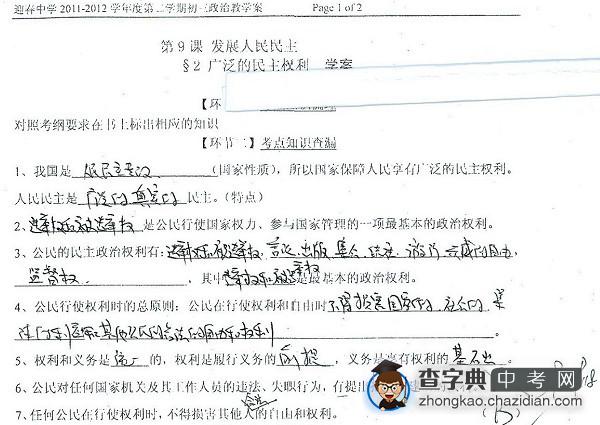 迎春中学 2011-2012 学年度第二学期初三政治教学案 Page 1 of 2
第 9 课 发展人民民主
§2 广泛的民主权利 学案
【环
对照考纲要求在书上标出相应的知识
【环节二】考点知识查漏
1、我国是 人民民主专政 (国家性质)，所以国家保障人民享有广泛的民主权利。
人民民主是 广泛的 真实的 民主。(特点)
2、选举权和被选举权 是公民行使国家权力、参与国家管理的一项最基本的政治权利。
3、公民的民主政治权利有：选举权和被选举权，言论、出版、集会、结社、游行、示威的自由
监督权 ，其中选举权和被选举权是最基本的政治权利。
4、公民行使权利时的总原则：公民在行使权利和自由时不得损害国家的、社会的、集
体的利益和其他公民的合法的自由和权利 。
5、权利和义务是统一的，权利是履行义务的前提，义务是享有权利的基础。
6、公民对任何国家机关及其工作人员的违法、失职行为，有提出
7、任何公民在行使权利时，不得损害其他人的合法自由和权利。
(B)
查字典中考网
zhongkao.chazidian.com